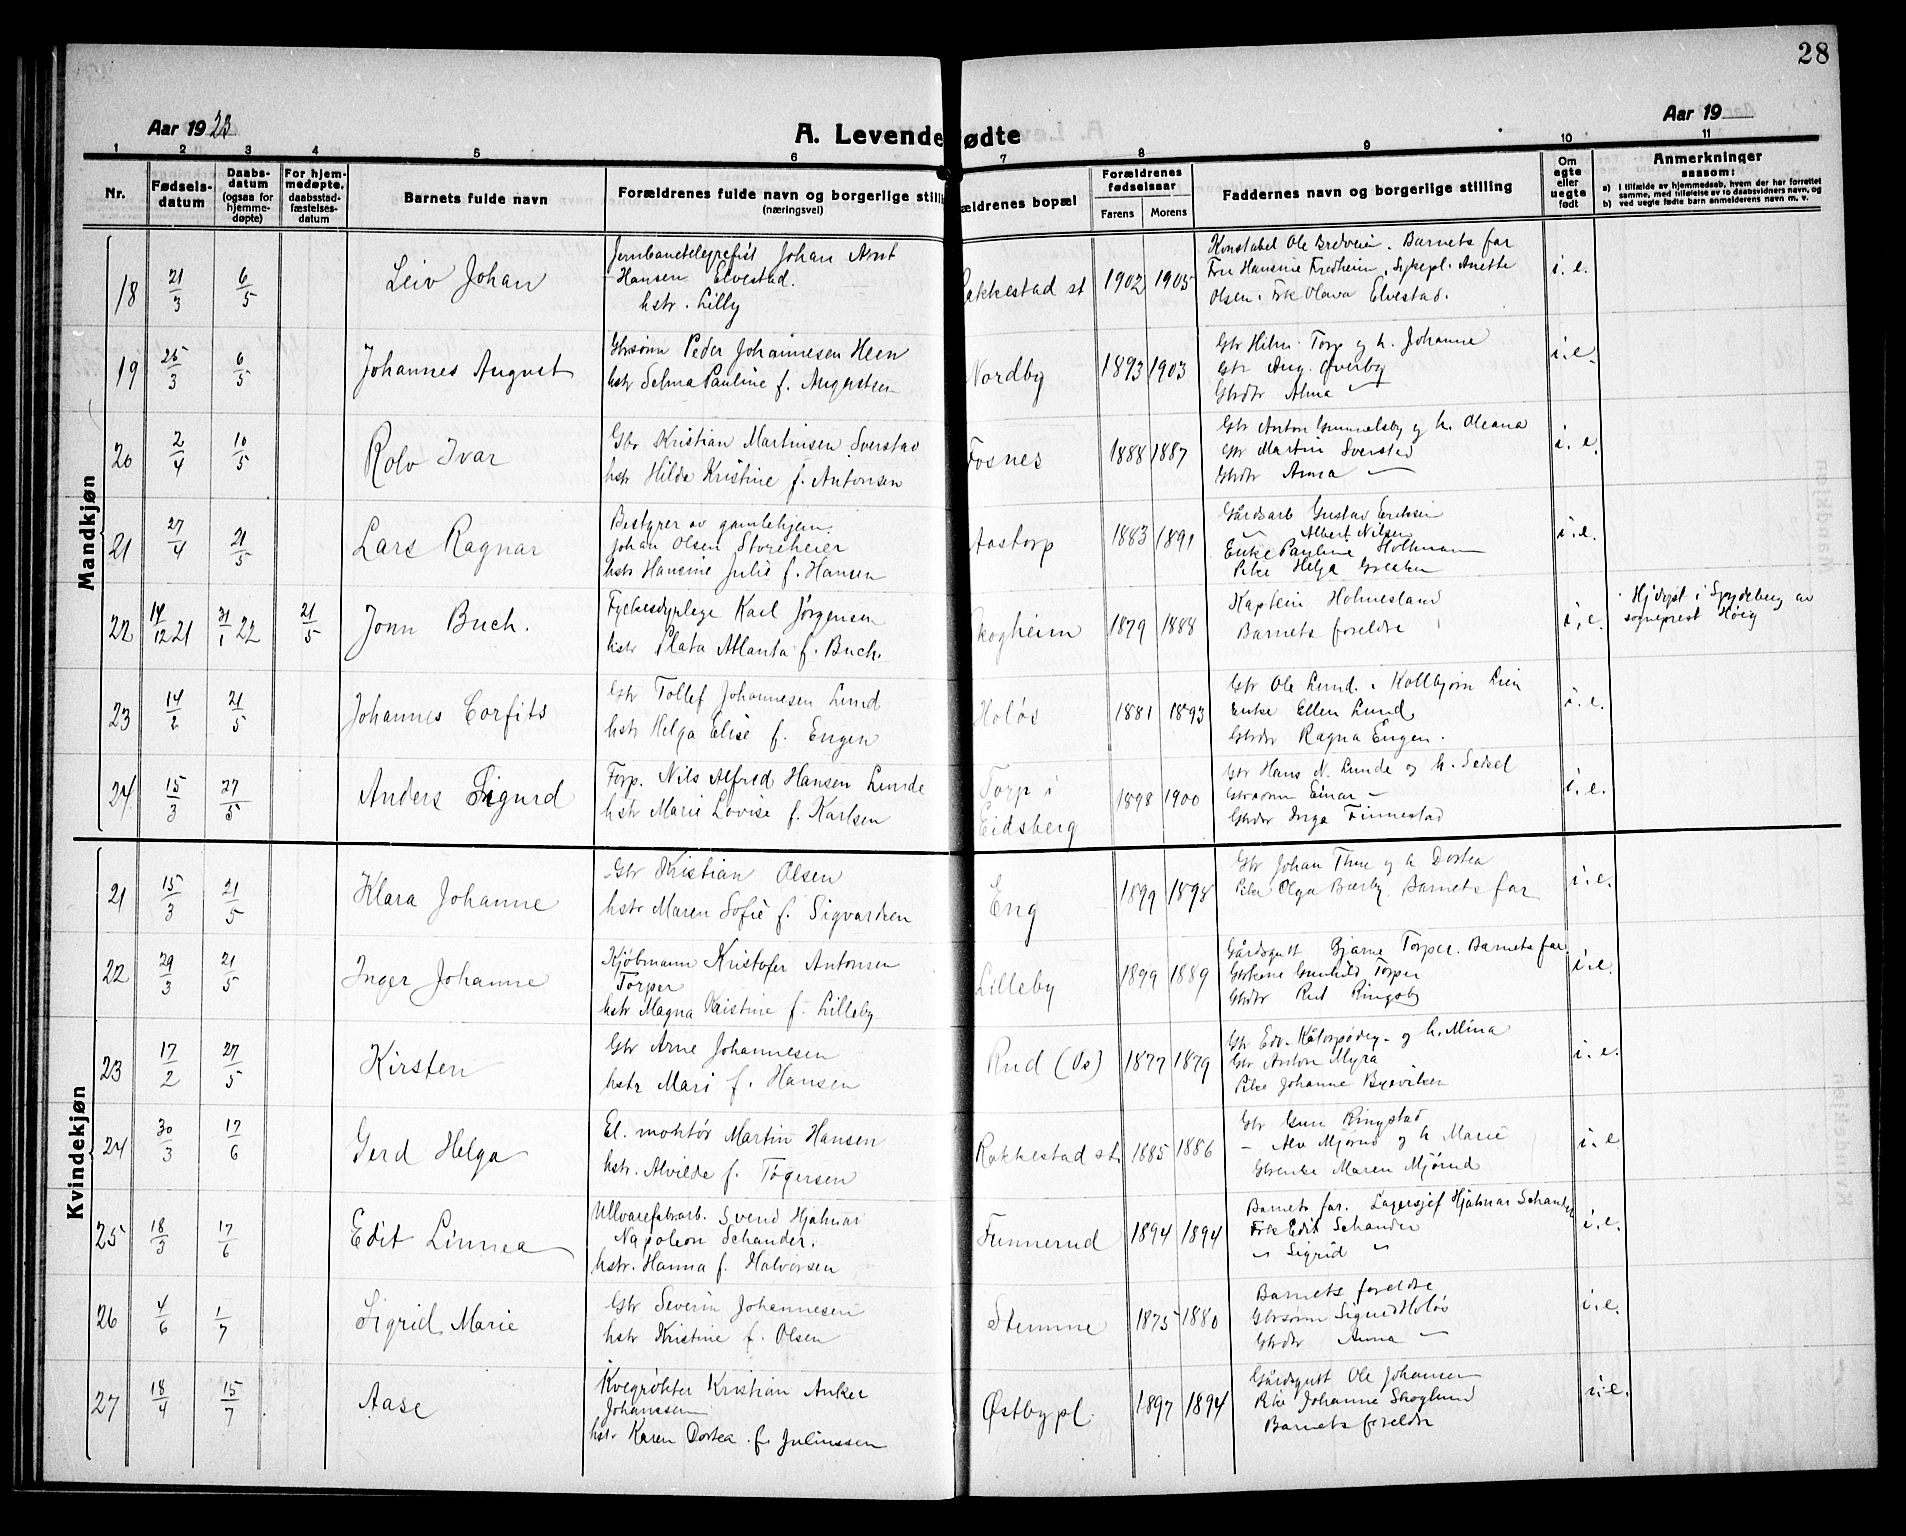 28
Aar 1923
A. Levendefødte
Aar 19
1 2 3 4 5 6 7 8 9 10 11
Nr.
Fødsels-
datum
Daabs-
datum
(ogsaa for
hjemme-
døpte)
For hjem-
medøpte,
daabsstad-
fæstelses-
datum
Barnets fulde navn
Forældrenes fulde navn og borgerlige stilli
(næringsvei)
ældrenes bopæl
Forældrenes
fødselsaar
Farens Morens
Faddernes navn og borgerlige stilling
Om
ægte
eller
uegte
født
Anmerkninger
saasom:
a) I tilfælde av hjemmedaab, hvem der har forrettet
samme, med tilføielse av to daabsvidners navn, og
b) ved uegte fødte barn anmelderens navn m. v.
Mandkjøn
18 21/3 6/5 Leiv Johan
Jernbanetelegrefist Johan Arnt
Hansen Elvestad.
hstr. Lilly
akkestad st 1902 1905
Konstabel Ole Bredveien. Barnets far
Fru Hansine Fredheim, Sykepl. Anette
Olsen. Frk Olava Elvestad.
i. e.
19 25/3 6/5 Johannes August
Gbrsønn Peder Johannesen Heen
hstr Selma Pauline f. Augustsen
Nordby 1893 1903
Gbr Hilm. Torp og h. Johanne
Gbr Aug. Øverby
Gbrdtr Alma —
i. e.
20 2/4 10/5 Rolv Ivar
Gbr Kristian Martinsen Sverstad
hstr Hilda Kristine f. Antonsen
Fosnes 1888 1887
Gbr Anton Gummelsby og h. Oleana
Gbr Martin Sverstad
Gbrdtr Anna —
i. e.
21 27/4 21/5 Lars Ragnar
Bestyrer av gamlehjem.
Johan Olsen Storeheier
hstr Hansine Julie f. Hansen
Aastorp 1883 1891
Gårdsarb Gustav Eriksen
— Albert Nilsen
Enke Pauline Holtmann
Pike Helga
i. e.
22 14/12 21 31/1 22 21/5 Jonn Buch.
Karl Jørgensen
hstr Plata Atlanta f. Buch.
kogheim 1879 1888
Kaptein Holmesland
Barnets foreldre
i. e.
Hjdøpt i Spydeberg av
sogneprest Høeg
23 14/2 21/5 Johannes Corfits
Gbr Tollef Johannesen Lund
hstr Helga Elise f. Engen
Holøs 1881 1893
Gbr Ole Lund. Kollbjørn Lien
Enke Ellen Lund
Gbrdtr Ragna Engen.
i. e.
24 15/3 27/5 Anders Sigurd
Forp. Nils Alfred Hansen Lunde
hstr Marie Lovise f. Karlsen
Torp i
Eidsberg 1898 1900
Gbr Hans N. Lunde og h. Sedsel
Gbrsønn Einar —
Gbrdtr Inga Finnestad
i. e.
Kvindekjøn
21 15/3 21/5 Klara Johanne
Gbr Kristian Olsen
hstr Maren Sofie f. Sigvardsen
Eng 1899 1898
Gbr Johan Thue og h Dortea
Pike Olga Bærby. Barnets far
i. e.
22 29/3 21/5 Inger Johanne
Kjøbmann Kristofer Antonsen
Torper
hstr Magna Kristine f. Lilleby
Lilleby 1899 1889
Gårdsgutt Bjarne Torper. Barnets far
Gbrkone Gunhild Torper
Gbrdtr Rut Ringsby
i. e.
23 17/2 27/5 Kirsten
Gbr Arne Johannesen
hstr Mari f. Hansen
Rud (Os) 1877 1879
Gbr Edv. og h. Mina
Gbr Anton Myra
Pike Johanne
i. e.
24 30/3 17/6 Gerd Helga
El. montør Martin Hansen
hstr. Alvilde f. Togersen
Rakkestad st. 1885 1886
Gbr Gun Ringstad
— Alv Mjørud og h Marie
Gbrenke Maren Mjørud
i. e
25 18/3 17/6 Edit Linnea
Ullvarefabarb. Svend Hjalmar
Napoleon Schander.
hstr. Hanna f. Halvorsen
Funnerud 1894 1894
Barnets far. Lagersjef Hjalmar Schander
Frk Edit Schander
„ Sigrid „
i. e.
26 4/6 1/7 Sigrid Marie
Gbr Severin Johannesen
hstr Kristine f. Olsen
Stemme 1875 1880
Barnets foreldre
Gbrsønn Sigurd Holøs
Gbrdtr Anna —
i. e.
27 18/4 15/7 Aase
Kvegrøkter Kristian Anker
Johanssen
hstr Karen Dortea f. Juliussen
Østby pl. 1897 1894
Gårdsgutt Ole Johansen
Pike Johanne Skoglund
Barnets foreldre
i. e.